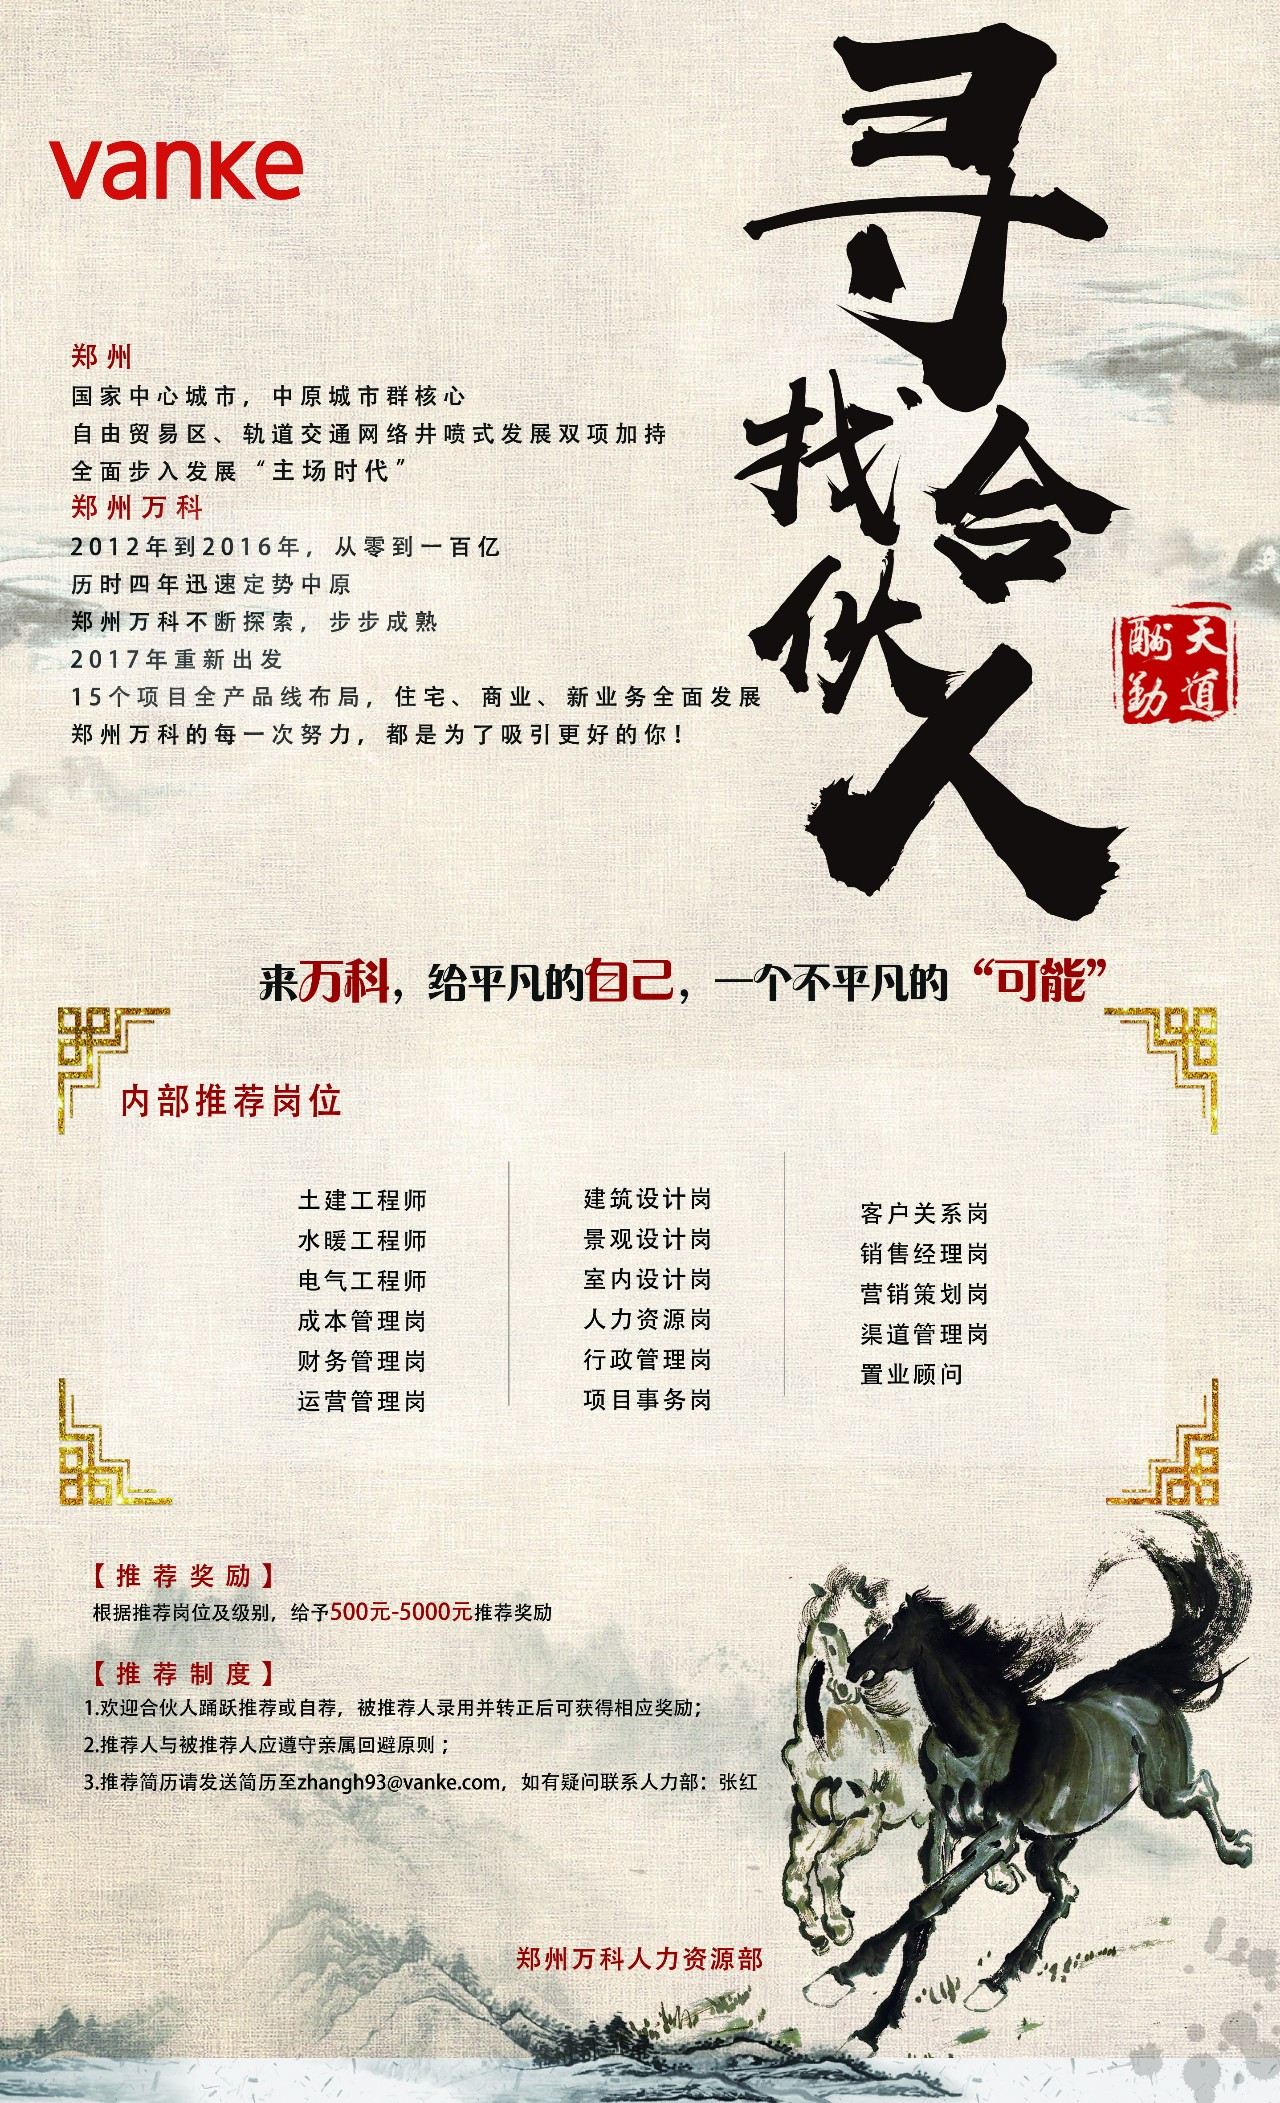 vanke
寻找合伙人
天道酬勤
郑州
国家中心城市，中原城市群核心
自由贸易区、轨道交通网络井喷式发展双项加持
全面步入发展“主场时代”
郑州万科
2012年到2016年，从零到一百亿
历时四年迅速定势中原
郑州万科不断探索，步步成熟
2017年重新出发
15个项目全产品线布局，住宅、商业、新业务全面发展
郑州万科的每一次努力，都是为了吸引更好的你！
来万科，给平凡的自己，一个不平凡的“可能”
内部推荐岗位
土建工程师
水暖工程师
电气工程师
成本管理岗
财务管理岗
运营管理岗
建筑设计岗
景观设计岗
室内设计岗
人力资源岗
行政管理岗
项目事务岗
客户关系岗
销售经理岗
营销策划岗
渠道管理岗
置业顾问
【推荐奖励】
根据推荐岗位及级别，给予500元-5000元推荐奖励
【推荐制度】
1.欢迎合伙人踊跃推荐或自荐，被推荐人录用并转正后可获得相应奖励；
2.推荐人与被推荐人应遵守亲属回避原则；
3.推荐简历请发送简历至zhangh93@vanke.com，如有疑问联系人力部：张红
郑州万科人力资源部